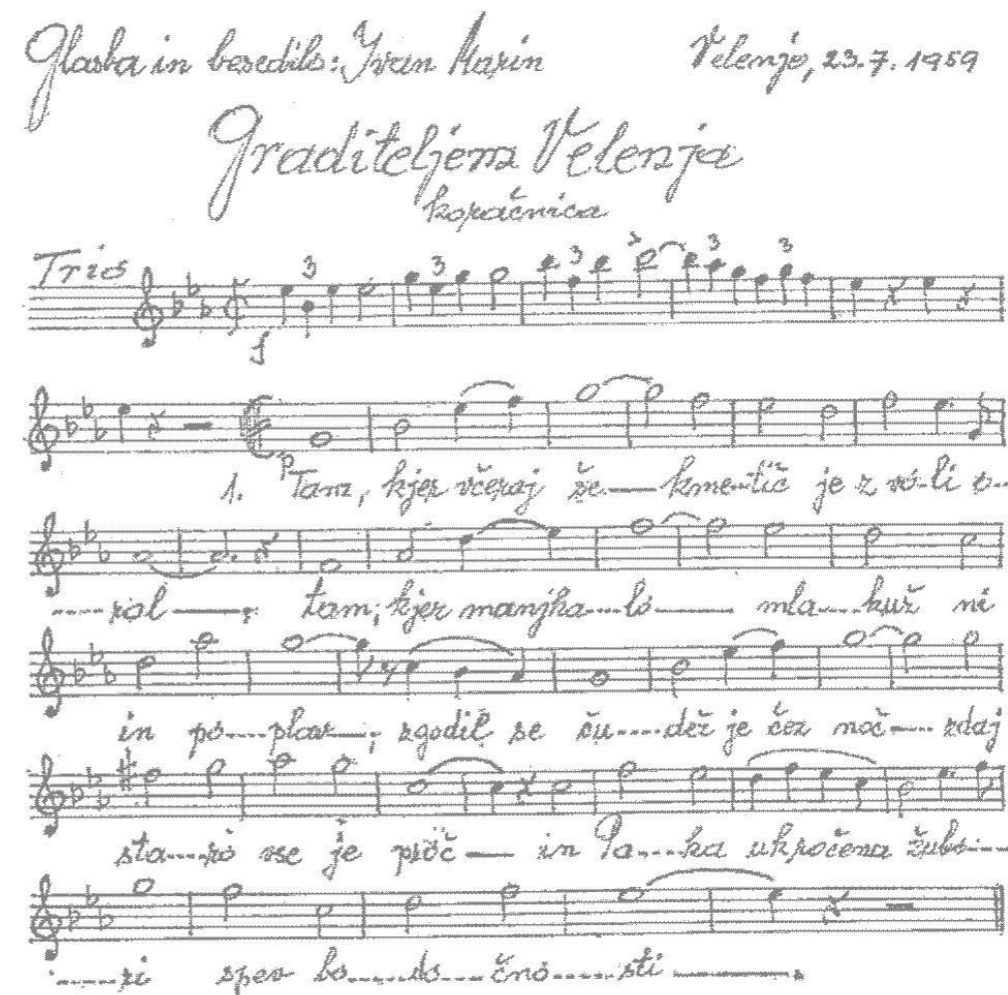 Glasba in besedilo: Ivan Marin Velenje, 23.7.1959
Graditeljem Velenja
koračnica
Trio
3 3 3 3 3
f
p
1. Tam, kjer včeraj še—kme-tič je z vo-li o--
----ral—, tam, kjer manjka---lo—— mla---kuž ni
in po----plav—, zgodil se ču----dež je čez noč— zdaj
sta---ro vse je proč— in Pa---ka ukročena žubo----
----ri spev bo---do---čno----sti——.